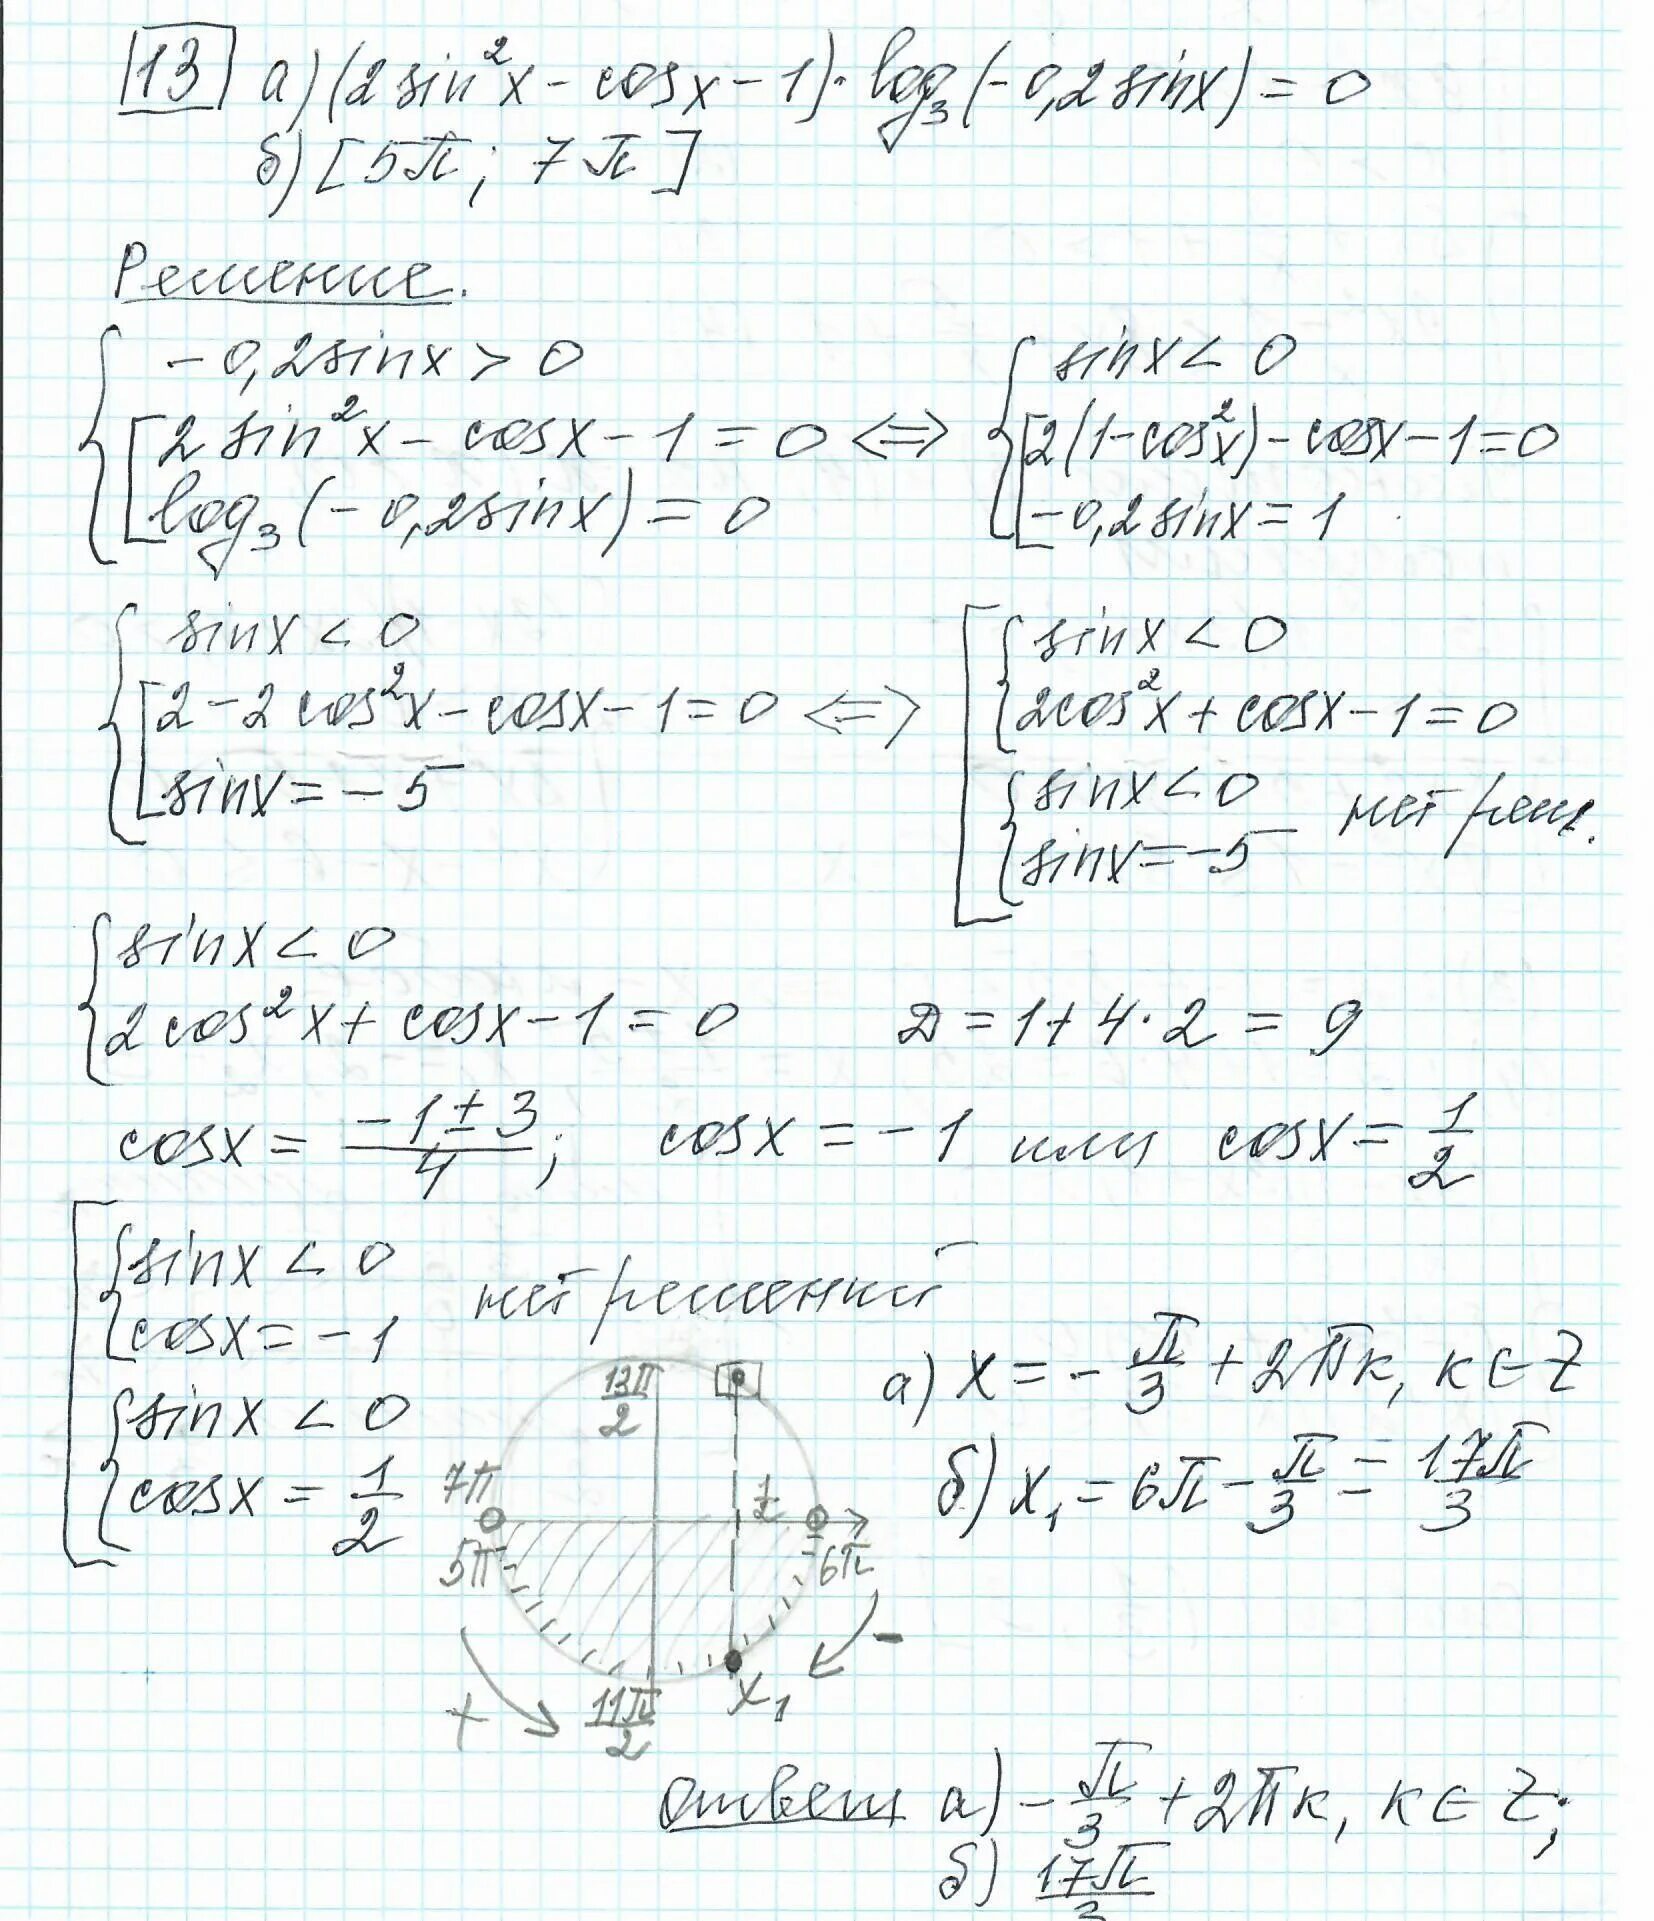 13 а) (2sin²x - cosx - 1) · log₃(-0,2sinx) = 0
б) [5π; 7π]
Решение.
{ -0,2sinx > 0
[ 2sin²x - cosx - 1 = 0
log₃(-0,2sinx) = 0
<=>
{ sinx < 0
[ 2(1-cos²x) - cosx - 1 = 0
-0,2sinx = 1
{ sinx < 0
[ 2 - 2cos²x - cosx - 1 = 0
sinx = -5
<=>
[ { sinx < 0
2cos²x + cosx - 1 = 0
{ sinx < 0
sinx = -5 нет реш.
{ sinx < 0
2cos²x + cosx - 1 = 0 D = 1 + 4·2 = 9
cosx = (-1 ± 3)/4; cosx = -1 или cosx = 1/2
[ { sinx < 0
cosx = -1 нет решений
{ sinx < 0
cosx = 1/2
13π/2
7π
5π
1/2
6π
+
-
11π/2
x₁
а) x = -π/3 + 2πк, к ∈ Z
б) x₁ = 6π - π/3 = 17π/3
ответ а) -π/3 + 2πк, к ∈ Z;
б) 17π/3